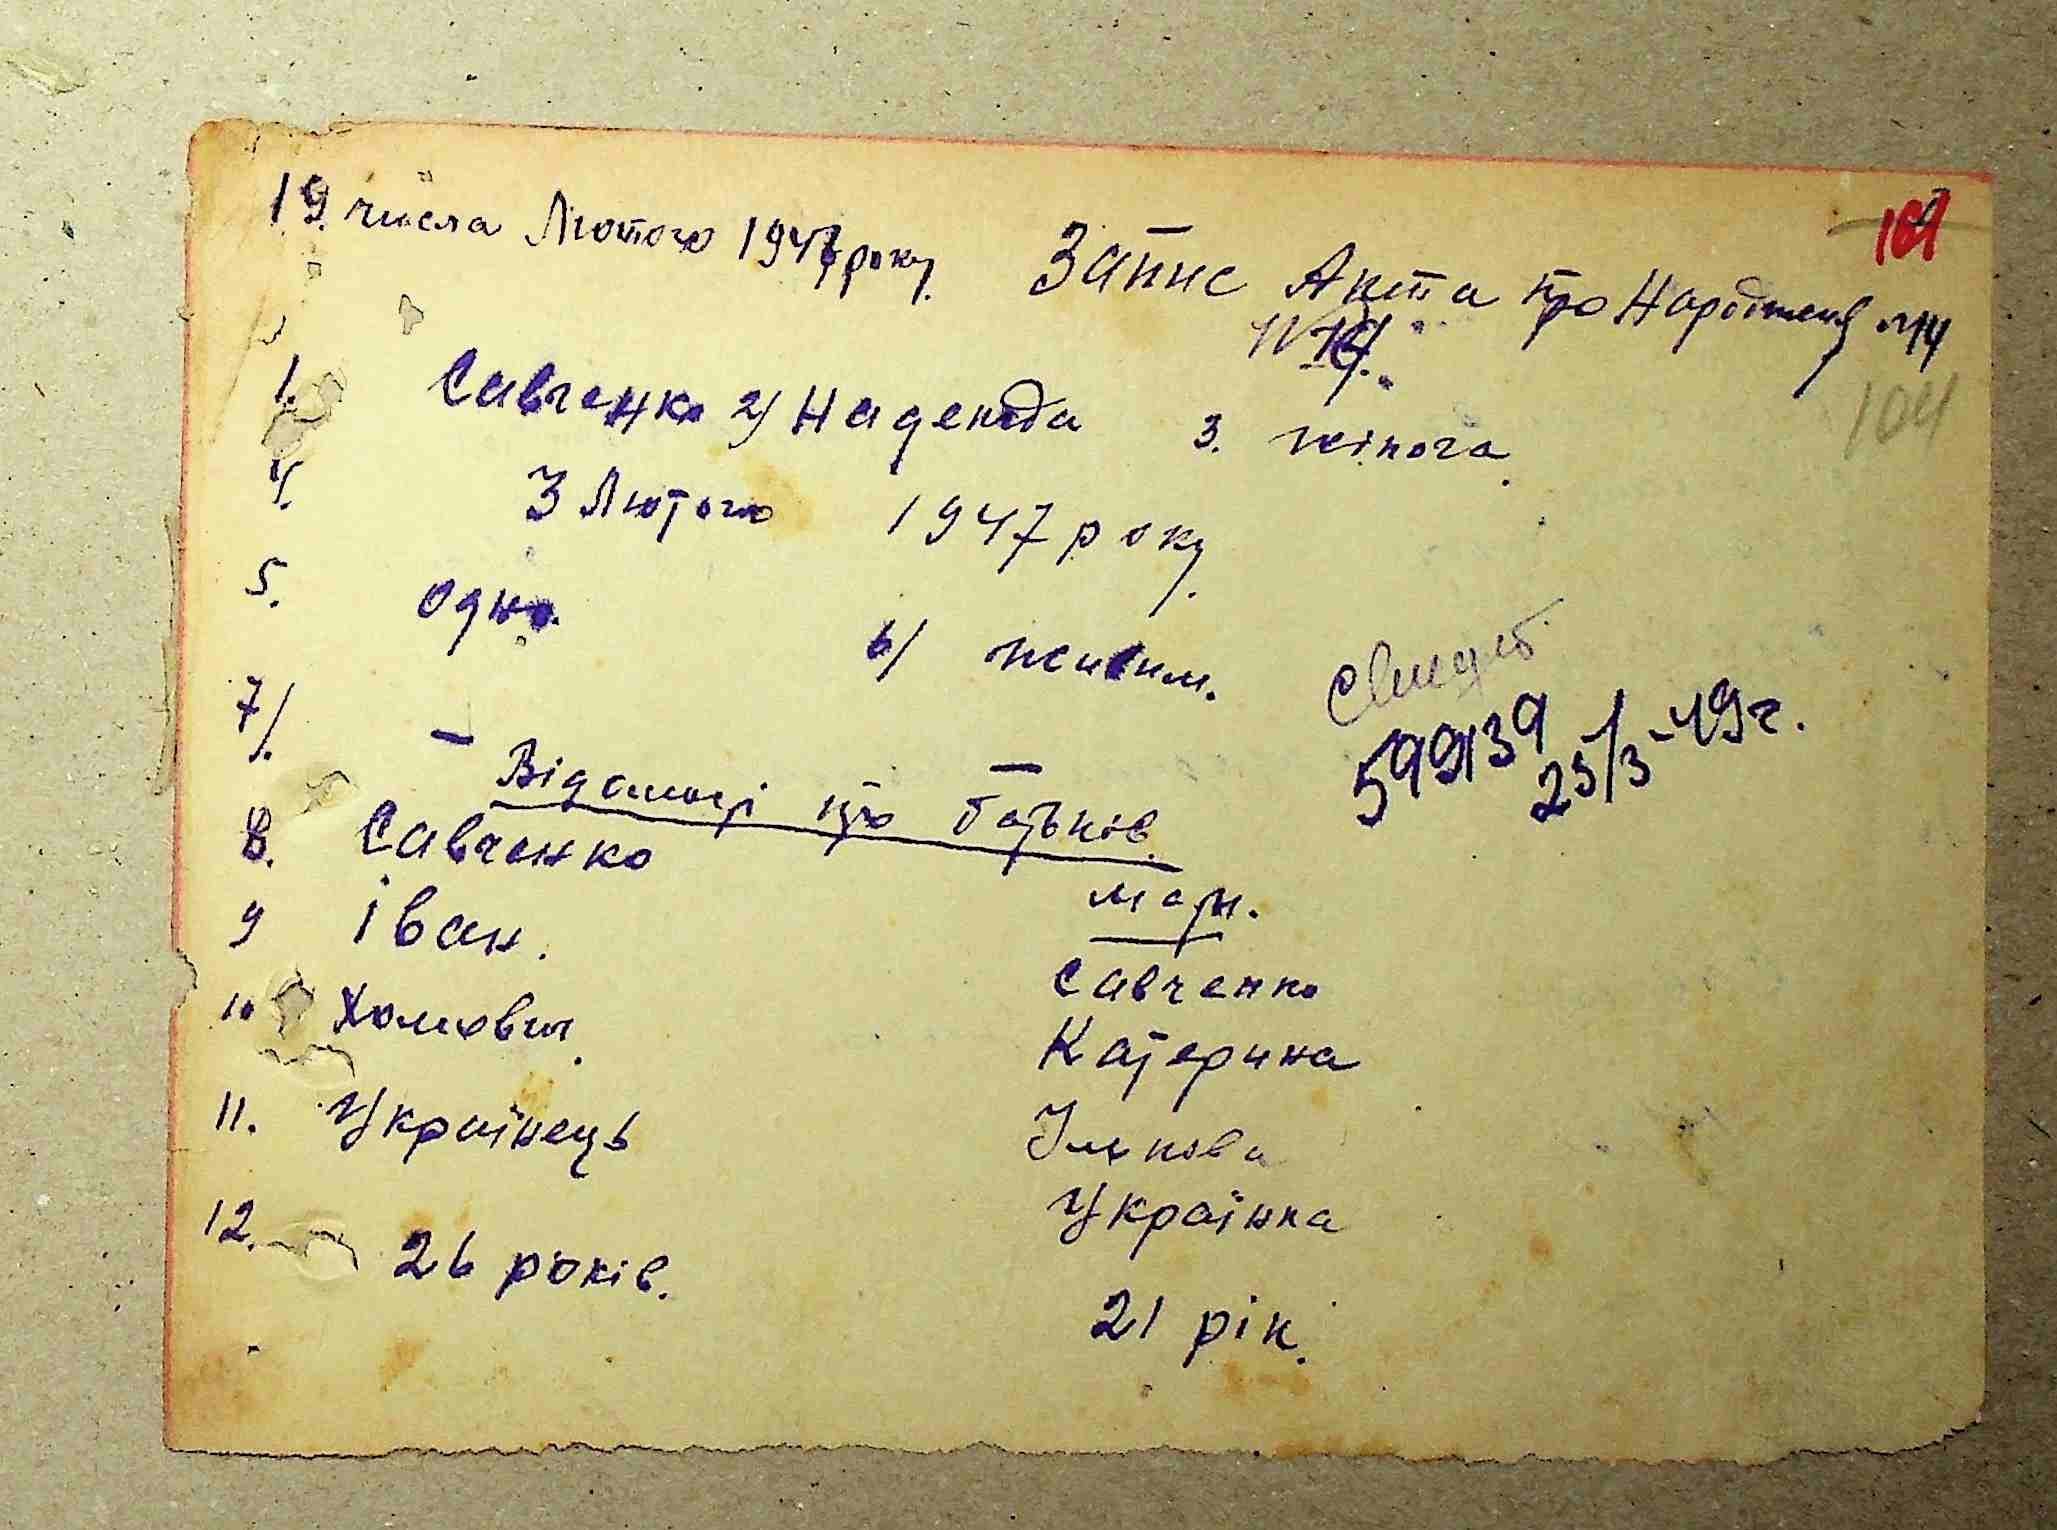 19 числа Лютого 1947 року. Запис Акта про Народження №14
104
1. Савченко 2/ Надежда 3. жіноча.
4. 3 Лютого 1947 року.
5. одно. 6/ живим.
7/. —
Свидет
599139 25/3-49г.
Відомості про батьків.
8. Савченко
9 Іван.
10 Хомович.
11. Українець
12. 26 років.
мати.
Савченко
Катерина
Українка
21 рік.